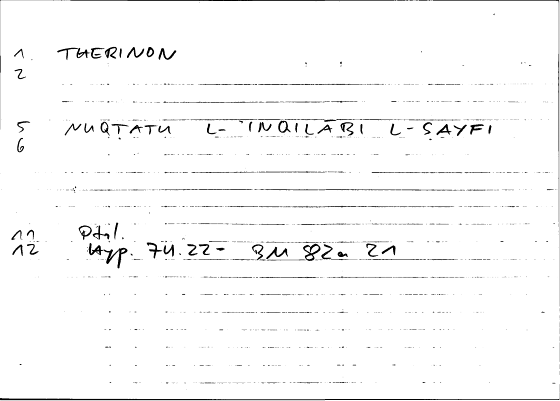 1. THERINON
2
5 NUQTATU L-'INQILĀBI L-SAYFI
6
11 Ptol.
12 Hyp. 74.22- BM 82a 21